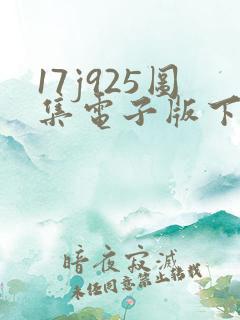 17j925圖
集電子版下
暗夜寂滅
未經同意禁止轉載